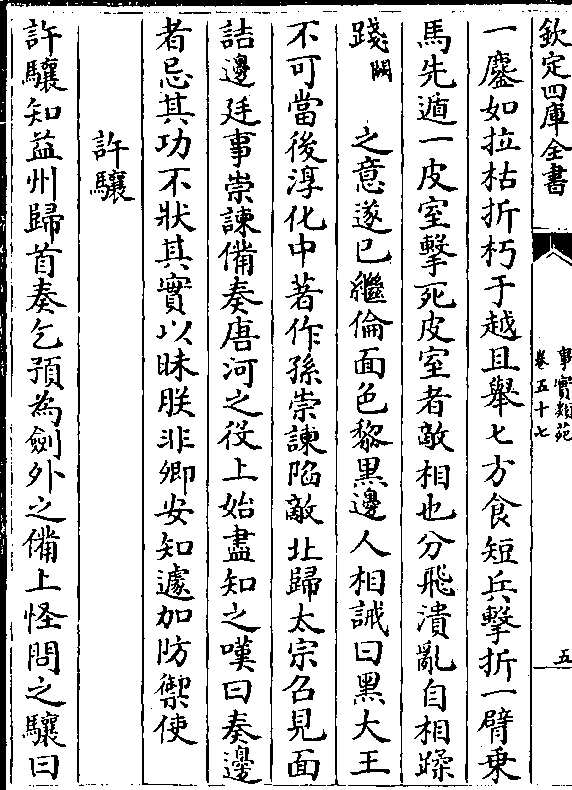 欽定四庫全書
事實類苑
卷五十七
五
一鏖如拉枯折朽于越且舉匕方食短兵擊折一臂乗
馬先遁一皮室擊死皮室者敵相也分飛潰亂自相蹂
踐闕之意遂已繼倫面色黎黒邊人相誡曰黒大王
不可當後淳化中著作孫崇諫陷敵北歸太宗召見面
詰邊廷事崇諫備奏唐河之役上始盡知之嘆曰奏邊
者忌其功不狀其實以昧朕非卿安知遽加防禦使
許驤
許驤知益州歸首奏乞預為劍外之備上怪問之驤曰